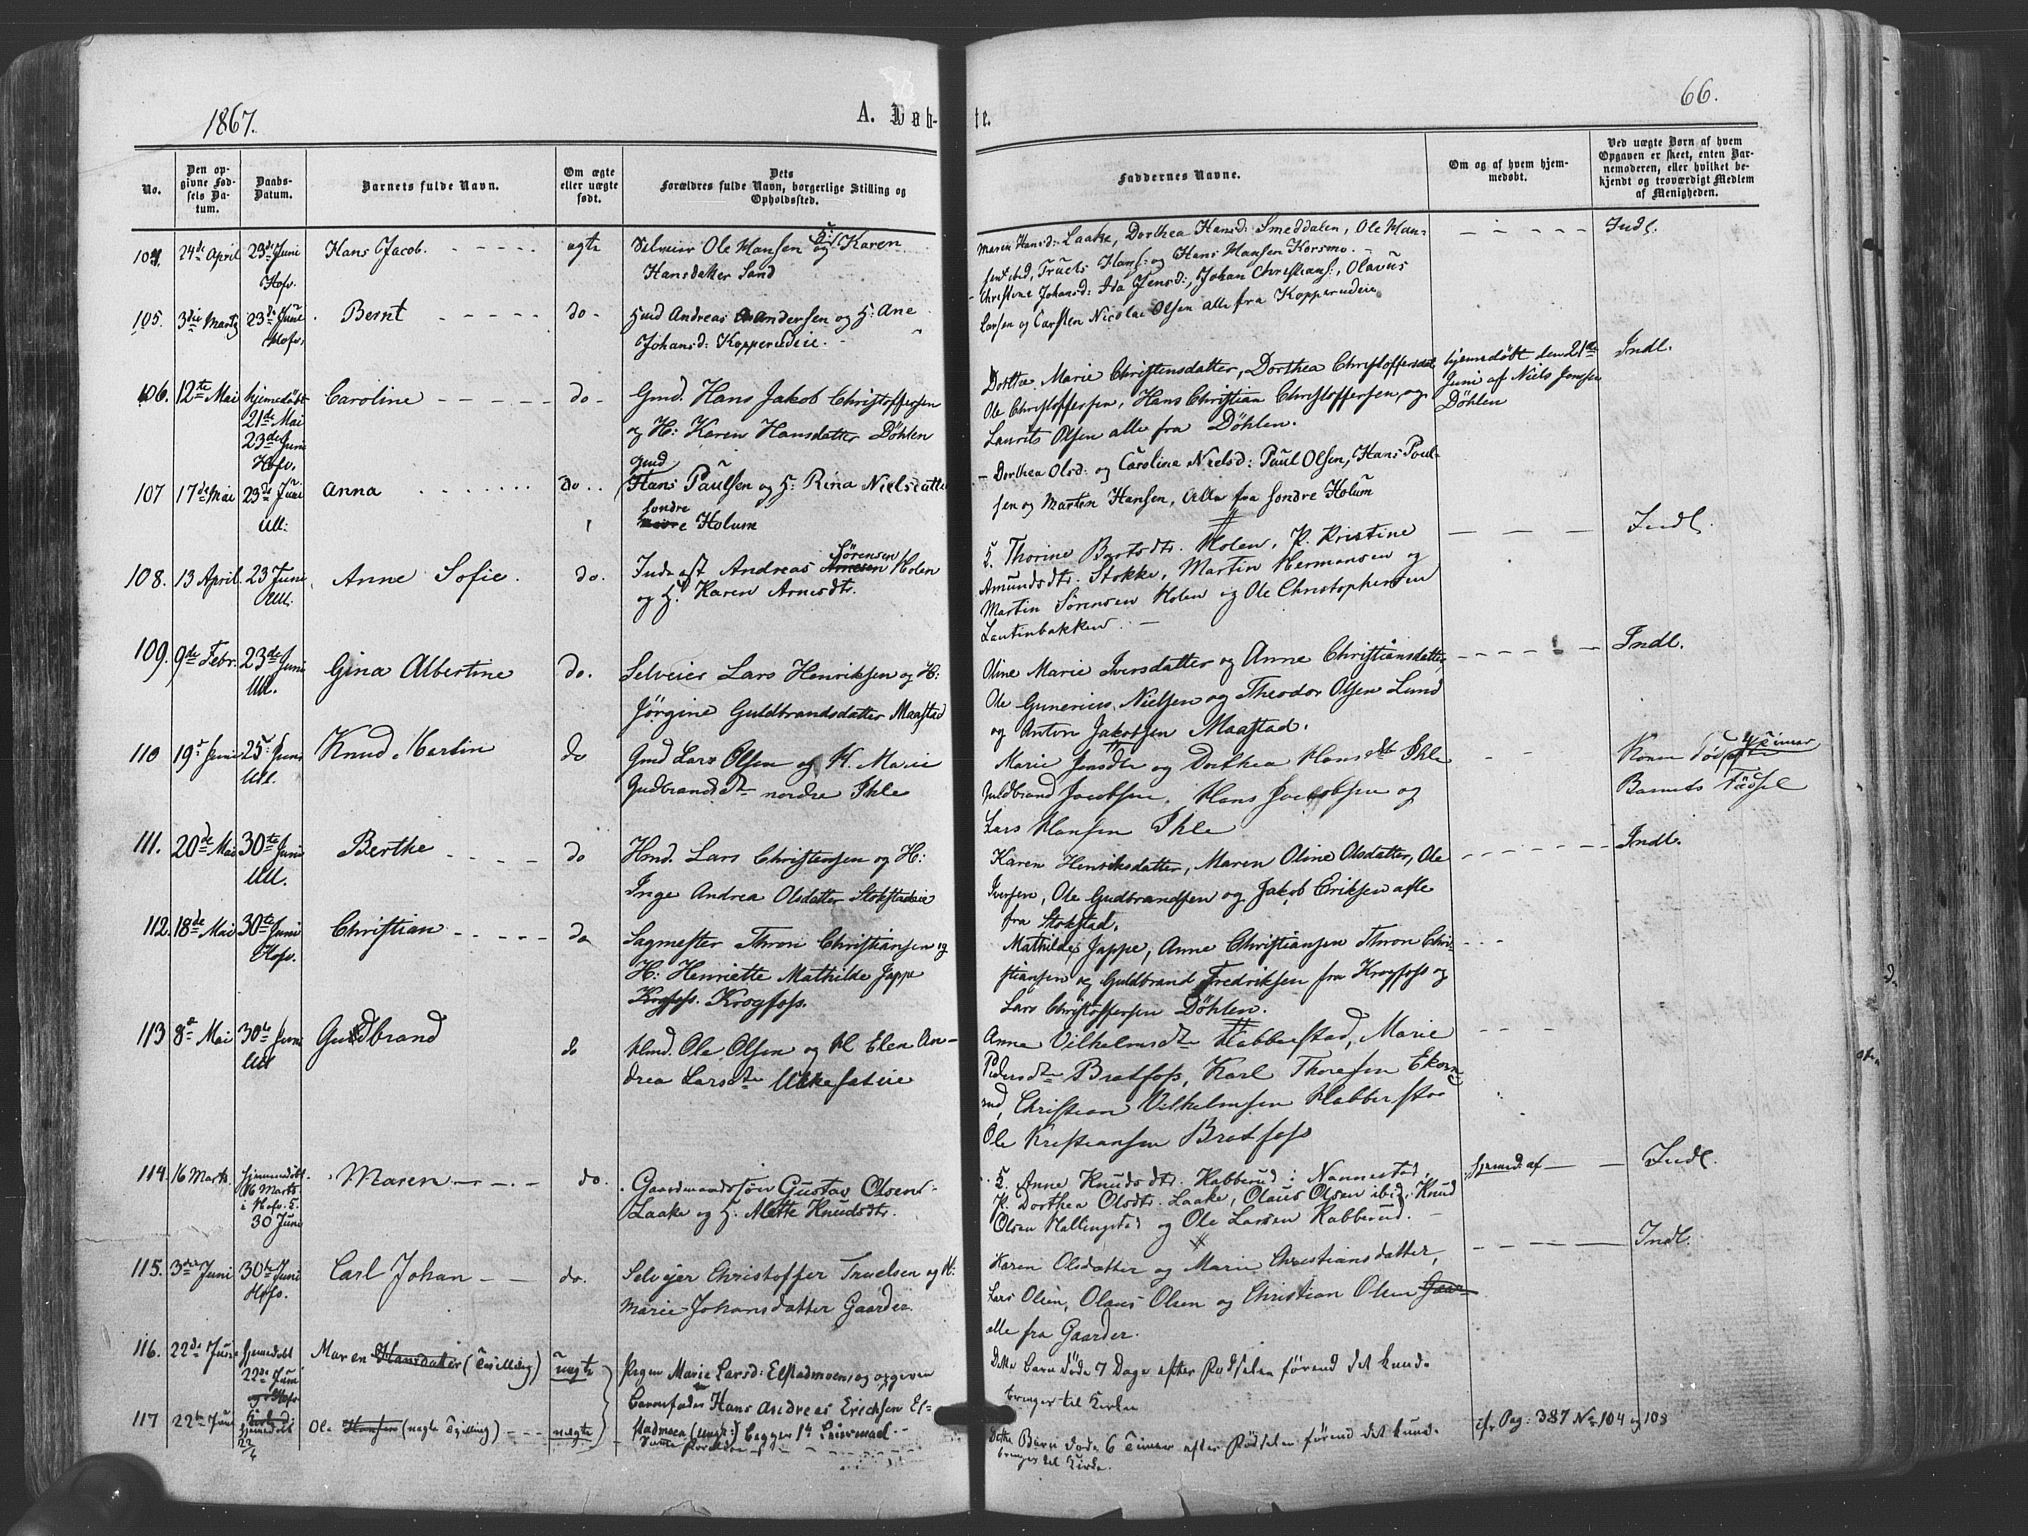 1867.
A. Døb-
te.
66.
No.
Den op-
givne Fød-
sels Da-
tum.
Daabs-
Datum.
Barnets fulde Navn.
Om ægte
eller uægte
født.
Dets
Forældres fulde Navn, borgerlige Stilling og
Opholdssted.
Faddernes Navne.
Om og af hvem hjem-
medøbt.
Ved uægte Børn af hvem
Opgaven er skeet, enten Bar-
nemoderen, eller hvilket be-
kjendt og troværdigt Medlem
af Menigheden.
104. 24de April 23de Juni
Hofv.
Hans Jacob.
ægte
Selveier Ole Hansen og H: Karen
Hansdatter Sand
Maren Hansd: Laake, Dorthea Hansd: Smeddalen, Ole Han-
sen ibd, Truels Hans: og Hans Hansen Korsmo.
Indl.
105. 3die Marts 23de Juni
Hofv.
Bernt
do
Husmd Andreas Andersen og H: Ane
Johansd: Kopperudeie.
Christine Johansd: Ida Jensd:, Johan Christians:, Olavus
Larsen og Carsten Nicolai Olsen alle fra Kopperudeie
106. 12te Mai hjemmedøbt
21de Mai
23de Juni
Hofv.
Caroline
do
Gmd. Hans Jakob Christoffersen
og H: Karen Hansdatter Døhlen
Dorthe Marie Christensdatter, Dorthea Christoffersdat
Ole Christoffersen, Hans Christian Christoffersen, og
Laurits Olsen alle fra Døhlen.
hjemmedøbt den 21de
Juni af Niels Jensen
Døhlen
Indl.
107 17de Mai 23de Juni
Ull:
Anna
do
Gmd
Hans Paulsen og H: Rina Nielsdatter
søndre
Holum
Dorthea Olsd: og Caroline Nielsd: Paul Olsen, Hans Poul-
sen og Martin Hansen, Alle fra søndre Holum
108. 13 April 23 Juni
Ull.
Anne Sofie.
do.
Inderst Andreas Sørensen Holen
og H. Karen Arnesdtr.
H. Thorine Bartsdtr. Holen, P. Kristine
Amundsdtr. Stokke, Martin Hermansen og
Martin Sørensen Holen og Ole Christophersen
Lautinbakken.
Indl.
109. 9de Febr. 23de Juni
Ull.
Gina Albertine
do.
Selveier Lars Henriksen og H:
Jørgine Guldbrandsdatter Maastad
Oline Marie Iversdatter og Anne Christiansdatter
Ole Gunerius Nielsen og Theodor Olsen Lund
og Anton Jakobsen Maastad.
Indl.
110 19de Juni 25 Juni
Ull.
Knud Martin
do
Gmd Lars Olsen og H. Marie
Gudbrandsdtr nordre Ihle
Marie Jensdtr og Dorthea Hansdtr Ihle
Guldbrand Jacobsen, Hans Jacobsen og
Lars Hansen Ihle
Barnets Fødsel
111. 20de Mai 30te Juni
Ull.
Berthe
do
Hmd. Lars Christensen og H:
Inge Andrea Olsdatter Stokstadeie
Karen Henriksdatter, Maren Oline Olsdatter, Ole
Iversen, Ole Gudbrandsen og Jakob Eriksen alle
fra Stokstad.
Indl.
112. 18de Mai 30te Juni
Hofv.
Christian
do
Sagmester Thron Christiansen og
H: Henriette Mathilde Jappe
Krogfoss. Krogfoss.
Mathilde Jappe, Anne Christiansen Thron Chri-
stiansen og Guldbrand Fredriksen fra Krogfoss og
Lars Christoffersen Døhlen.
113 8de Mai 30te Juni
Ull
Gudbrand
do
Hmd. Ole Olsen og H Elen An-
drea Larsdtr
Anne Vilhelmsdtr Habberstad, Marie
Pedersdtr Bratfoss, Karl Thoresen Ekorn-
rud, Christian Vilhelmsen Habberstad
Ole Kristiansen Bratfoss
114. 16 Marts. hjemmedøbt
16 Marts
i Hofv. K.
30 Juni
Maren
do.
Gaardmandssøn Gustav Olsen
Laake og H. Alette Knudsdtr.
H. Anne Knudsdtr. Habberud i Nannestad,
P. Dorthea Olsdtr. Laake, Olaus Olsen ibid, Knud
Olsen Hallingstad og Ole Larsen Habberud.
hjemd. af
Indl.
115. 3die Juni 30te Juni
Hofv.
Carl Johan
do.
Selvejer Christoffer Truelsen og H:
Marie Johansdatter Gaarder
Karen Olsdatter og Marie Christiansdatter,
Lars Olsen, Olaus Olsen og Christian Olsen Gaar
alle fra Gaarder.
Indl.
116. 22de Juni hjemmedøbt
22de Juni
Maren Hansdatter (Tvilling)
uægte
Pigen Marie Larsd: Elstadmoen, og opgiven
Barnefader Hans Andreas Erichsen El-
stadmoen (ungk:) begges 1ste Leiermaal
Dette Barn døde 7 Dage efter Fødselen førend det kunde
bringes til Kirke
117 22de Juni hjemmedøbt
23/6
Ole Hansen (uægte Tvilling)
uægte
Samme Forældre
Dette Barn døde 6 Timer efter Fødselen førend det kunde
bringes til Kirke.
cfr. Pag: 387 No 104 og 103